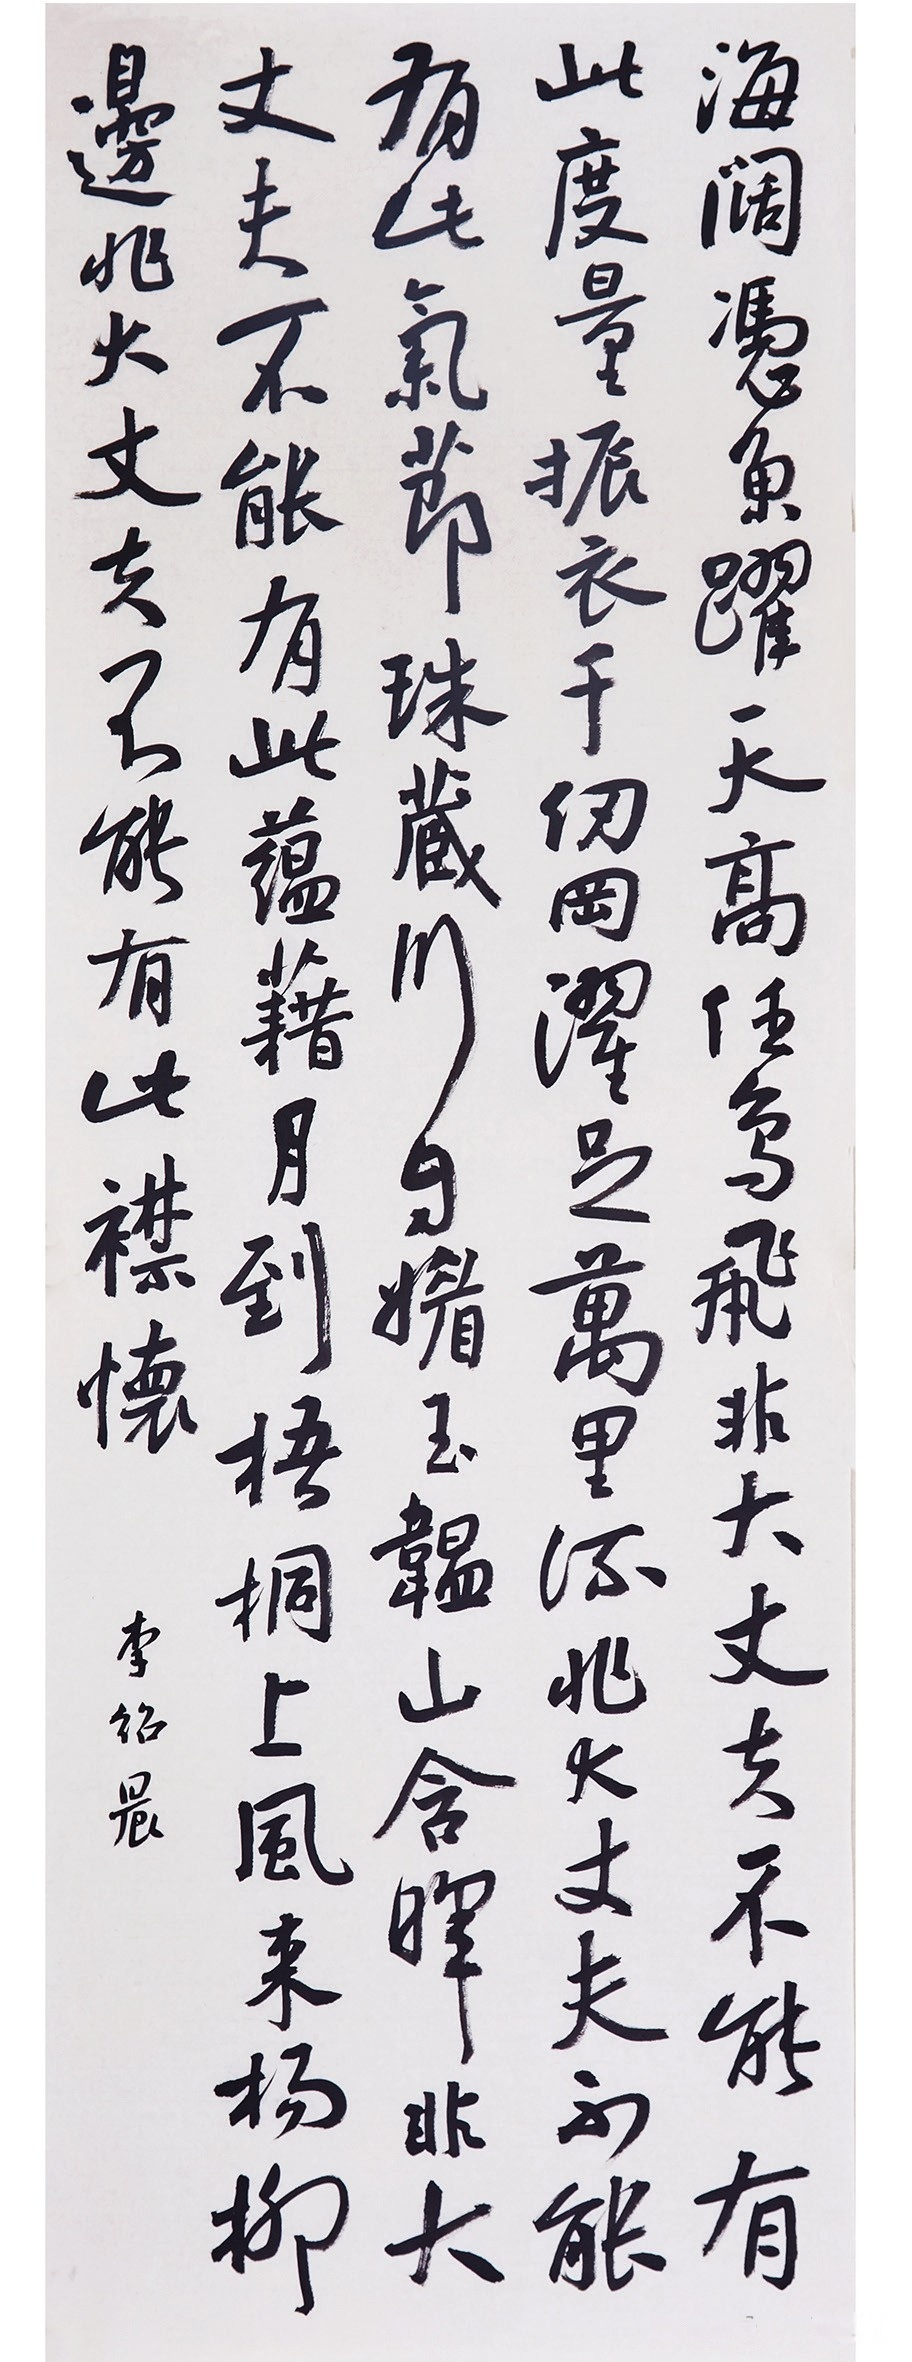 海闊憑魚躍天高任鳥飛非大丈夫不能有
此度量振衣千仞岡濯足萬里流非大丈夫不能
有此氣節珠藏川自媚玉韞山含暉非大
丈夫不能有此蕴藉月到梧桐上風来楊柳
邊非大丈夫不能有此襟懷
李紹晨